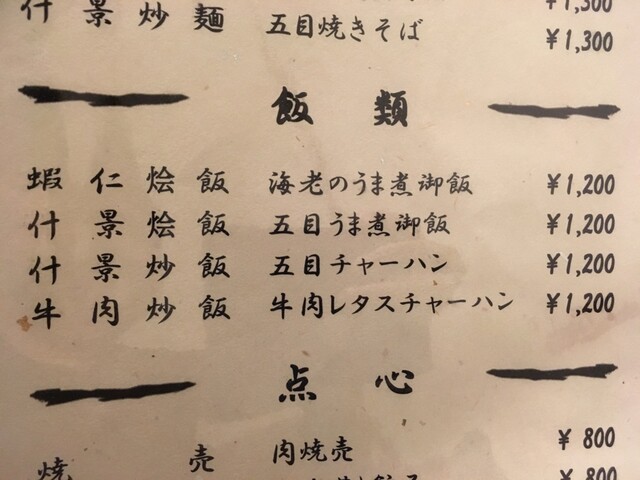 什景炒麺 五目焼きそば ¥1,300
¥1,300
飯類
蝦仁烩飯 海老のうま煮御飯 ¥1,200
什景烩飯 五目うま煮御飯 ¥1,200
什景炒飯 五目チャーハン ¥1,200
牛肉炒飯 牛肉レタスチャーハン ¥1,200
点心
焼売 肉焼売 ¥800
¥800